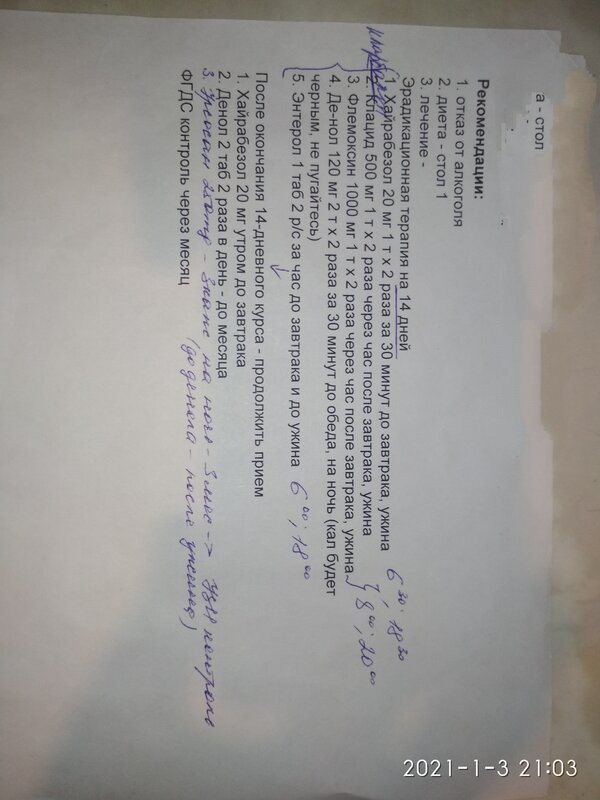 а - стол
Рекомендации:
1. отказ от алкоголя
2. диета - стол 1
3. лечение -
Эрадикационная терапия на 14 дней
1. Хайрабезол 20 мг 1 т х 2 раза за 30 минут до завтрака, ужина 6 30; 18 30
2. Клацид 500 мг 1 т х 2 раза через час после завтрака, ужина
3. Флемоксин 1000 мг 1 т х 2 раза через час после завтрака, ужина } 8 00; 20 00
4. Де-нол 120 мг 2 т х 2 раза за 30 минут до обеда, на ночь (кал будет
черным, не пугайтесь)
5. Энтерол 1 таб 2 р/с за час до завтрака и до ужина 6 00; 18 00
После окончания 14-дневного курса - продолжить прием
1. Хайрабезол 20 мг утром до завтрака
2. Денол 2 таб 2 раза в день - до месяца
3. 250 мг - 3 капс на ночь - 3 мес -> УЗИ контроль
(до денола - после ужина)
ФГДС контроль через месяц
2021-1-3 21:03